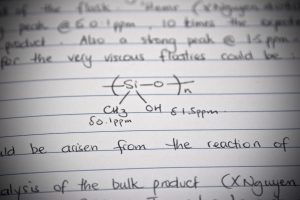 of the flask. "Hmmm" (XNguyen
peak @ δ 0.1ppm, 10 times the expected
product. Also a strong peak @ 1.5 ppm
for the very viscous could be
(Si-O)n
CH3 OH δ 1.5ppm
δ0.1ppm
ld be arisen from the reaction of
alysis of the bulk product (XNguyen